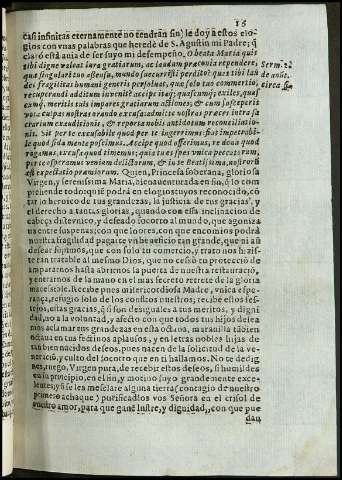 15
casi infinitas eternamente no tendràn fin) le doy à estos elo-
gios con vnas palabras que heredè de S. Agustin mi Padre; q̃
claro està auia de ser suyo mi desempeño. O beata Maria quis
tibi digne valeat iura gratiarum, ac laudum præconia rependere,
quæ singulari tuo assensu, mundo succurristi perdito? quas tibi lau
des fragilitas humani generis persoluat, quæ solo tuo commertio,
recuperandi additum inuenit? accipe itaq; quascumq; exiles, quas
cumq; meritis tuis impares gratiarum actiones, & cum susceperis
vota culpas nostras orando excusa: admitte nostras preces intra sa
crarium exauditionis, & reporta nobis antidotum reconciliatio-
nis. Sit per te excusabile quod per te ingerimus: fiat impetrabi-
le quod fida mente poscimus. Accipe quod offerimus, redona quod
rogamus, excusa quod timemus; quia tu es spes vnica peccatorum,
per te speramus veniam delictorum, & in te Beatissima, nostrorū
est expectatio præmiorum. Quien, Princesa soberana, gloriosa
Virgen, y serenissima Maria, bienauenturada en fin, (q̃ lo com
prehende todo) quiẽ podrà en elogios tuyos reconocido, cã
tar lo heroico de tus grandezas, la justicia de tus gracias, y
el derecho a tantas glorias, quando con essa inclinacion de
cabeça diste vnico, y deseado socorro al mundo, que agoniza
ua entre suspenas; con que loores, con que encomios podrà
nuestra fragilidad pagarte vn beneficio tan grande, que ni aū
desear supimos, que con solo tu comercio, y trato nos hizis-
te tan tratable al mesmo Dios, que no cessò tu protecciō de
ampararnos hasta abrirnos la puerta de nuestra restauraciō,
y entrarnos de la mano en el mas secreto retrete de la gloria
mace stole. Recibe pues misericordiosa Madre, vnica espe-
rança, refugio solo de los conflictos nuestros; recibe estos fes-
tejos, estas gracias, q̃ si son desiguales a tus meritos, y digni
dad, no a la voluntad, y afecto con que todos tus hijos desea
mos aclamar tus grandezas en esta octaua, marauilla tābien
octaua en tus festiuos aplausos, y en letras nobles hijas de
tan bien nacidos deseos, pues nacen de la solicitud de la ve-
neraciō, y culto del socorro que en ti hallamos. No te dedig
nes, ruego, Virgen pura, de recebir estos deseos, si humildes
en su principio, en el fin, y motiuo suyo grandemente exce-
lentes; y si se les mesclare alguna tierra (contagio de nuestro
primero achaque) purificadlos vos Señora en el crisol de
vuestro amor, para que ganẽ lustre, y dignidad, con que pue
dan